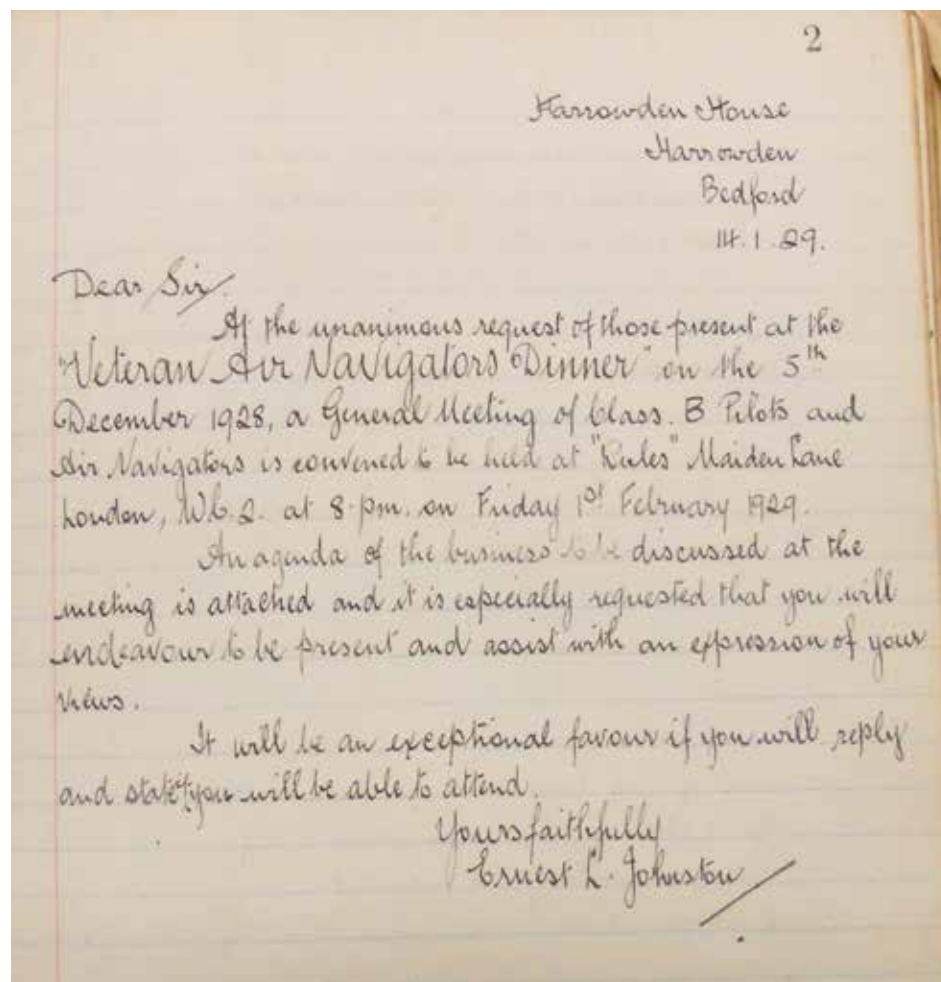 2
Harrowden House
Harrowden
Bedford
14.1.29.
Dear Sir.
At the unanimous request of those present at the
"Veteran Air Navigators Dinner" on the 5th
December 1928, a General Meeting of Class. B Pilots and
Air Navigators is convened to be held at "Rules" Maiden Lane
London, W.C.2. at 8 pm. on Friday 1st February 1929.
An agenda of the business to be discussed at the
meeting is attached and it is especially requested that you will
endeavour to be present and assist with an expression of your
views.
It will be an exceptional favour if you will reply
and state if you will be able to attend.
Yours faithfully
Ernest L. Johnston